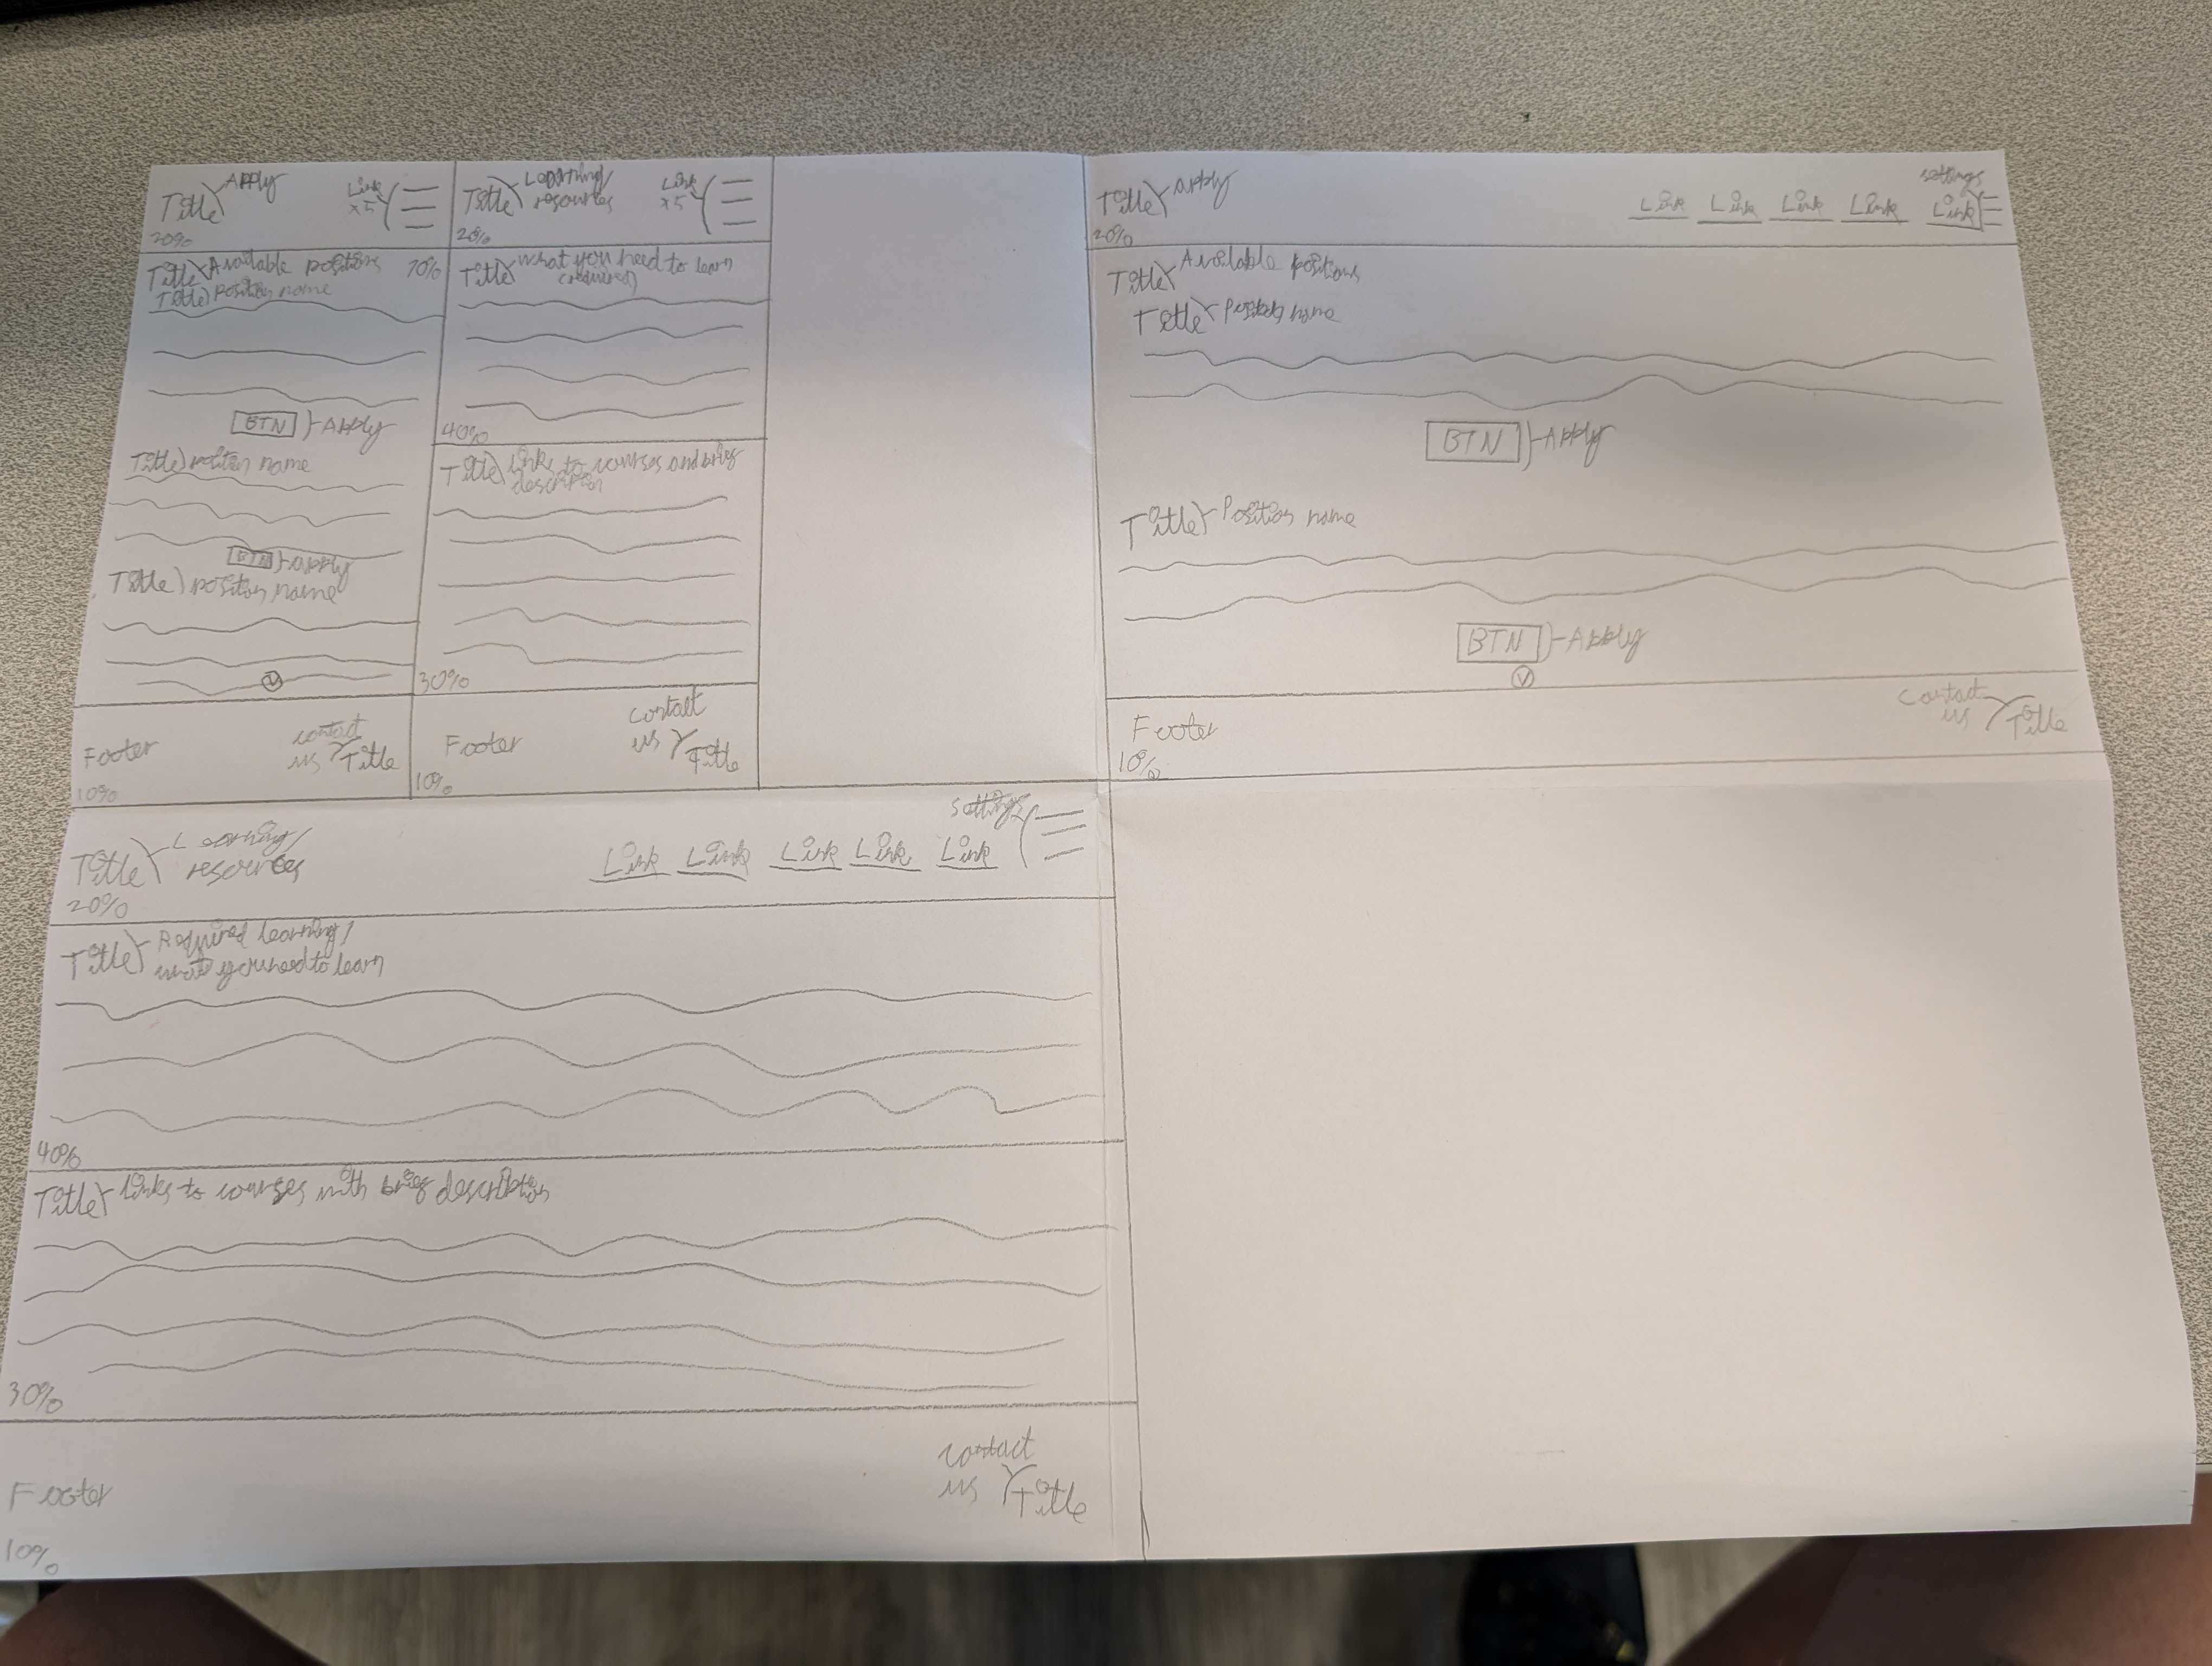 Title Apply
Link
x5
20%
Title Available positions 70%
Title position name
BTN Apply
Title position name
BTN Apply
Title position name
V
Footer
contact
us Title
10%
Title Learning/
resources
Link
x5
20%
Title what you need to learn
(required)
40%
Title Links to courses and brief
description
30%
Footer
contact
us Title
10%
Title Apply
settings
Link Link Link Link Link
20%
Title Available positions
Title Position name
BTN Apply
Title Position name
BTN Apply
V
Footer
Contact
us Title
10%
Title Learning/
resources
settings
Link Link Link Link Link
20%
Title Required learning/
what you need to learn
40%
Title Links to courses with brief description
30%
Footer
contact
us Title
10%